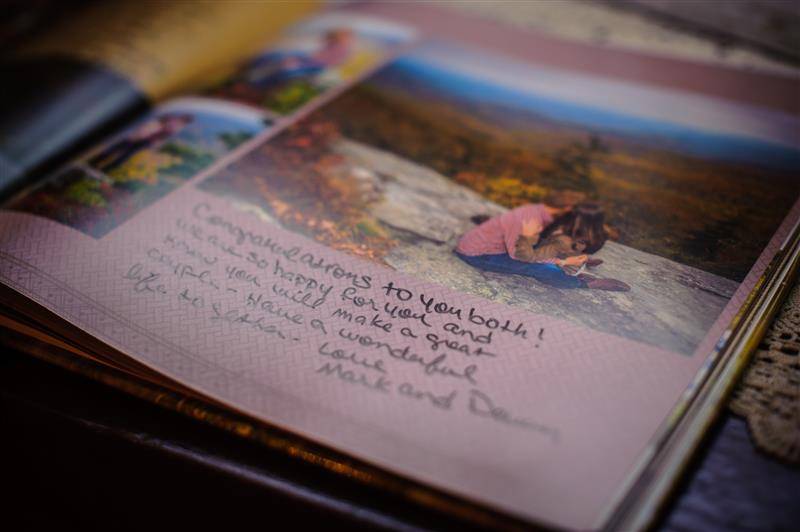 Congratulations to you both!
we are so happy for you and
know you will make a great
couple - Have a wonderful
life together.
Love
Mark and